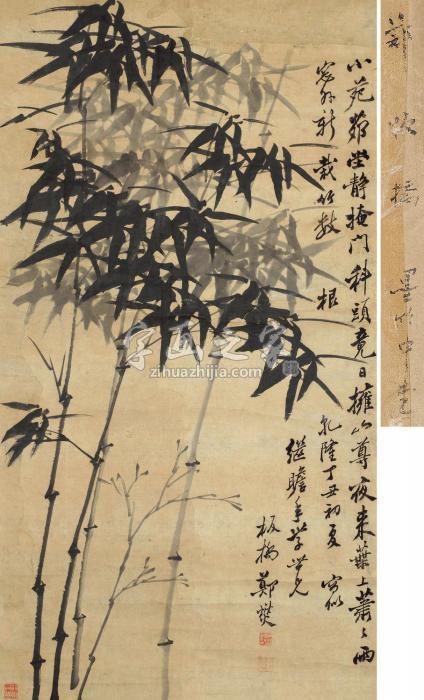 小苑茆堂静掩門科頭竟日擁山尊夜来葉上蕭〻雨
窓外新栽竹数根
乾隆丁丑初夏 寫似
继瞻年学世兄
板橋鄭燮
墨竹中堂
字画之家
zihuazhijia.com